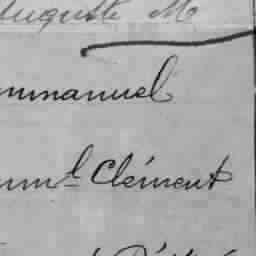 Auguste M
mmanuel
mm^l Clément